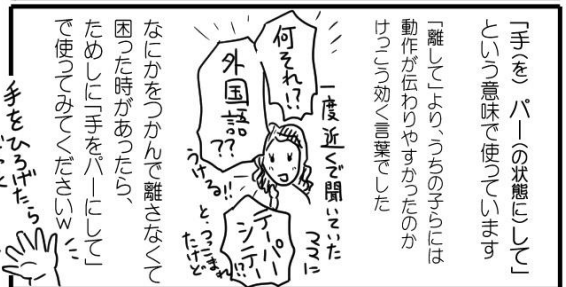 「手(を) パー(の状態に)して」
という意味で使っています
「離して」より、うちの子らには
動作が伝わりやすかったのか
けっこう効く言葉でした
一度近くで聞いていた
ママに
何それ?!
外国語
??
うける!!
テーパー
シテー!?
と、つっこまれ
たけど
なにかをつかんで離さなくて
困った時があったら、
ためしに「手をパーにして」
で使ってみてくださいw
手をひろげたら